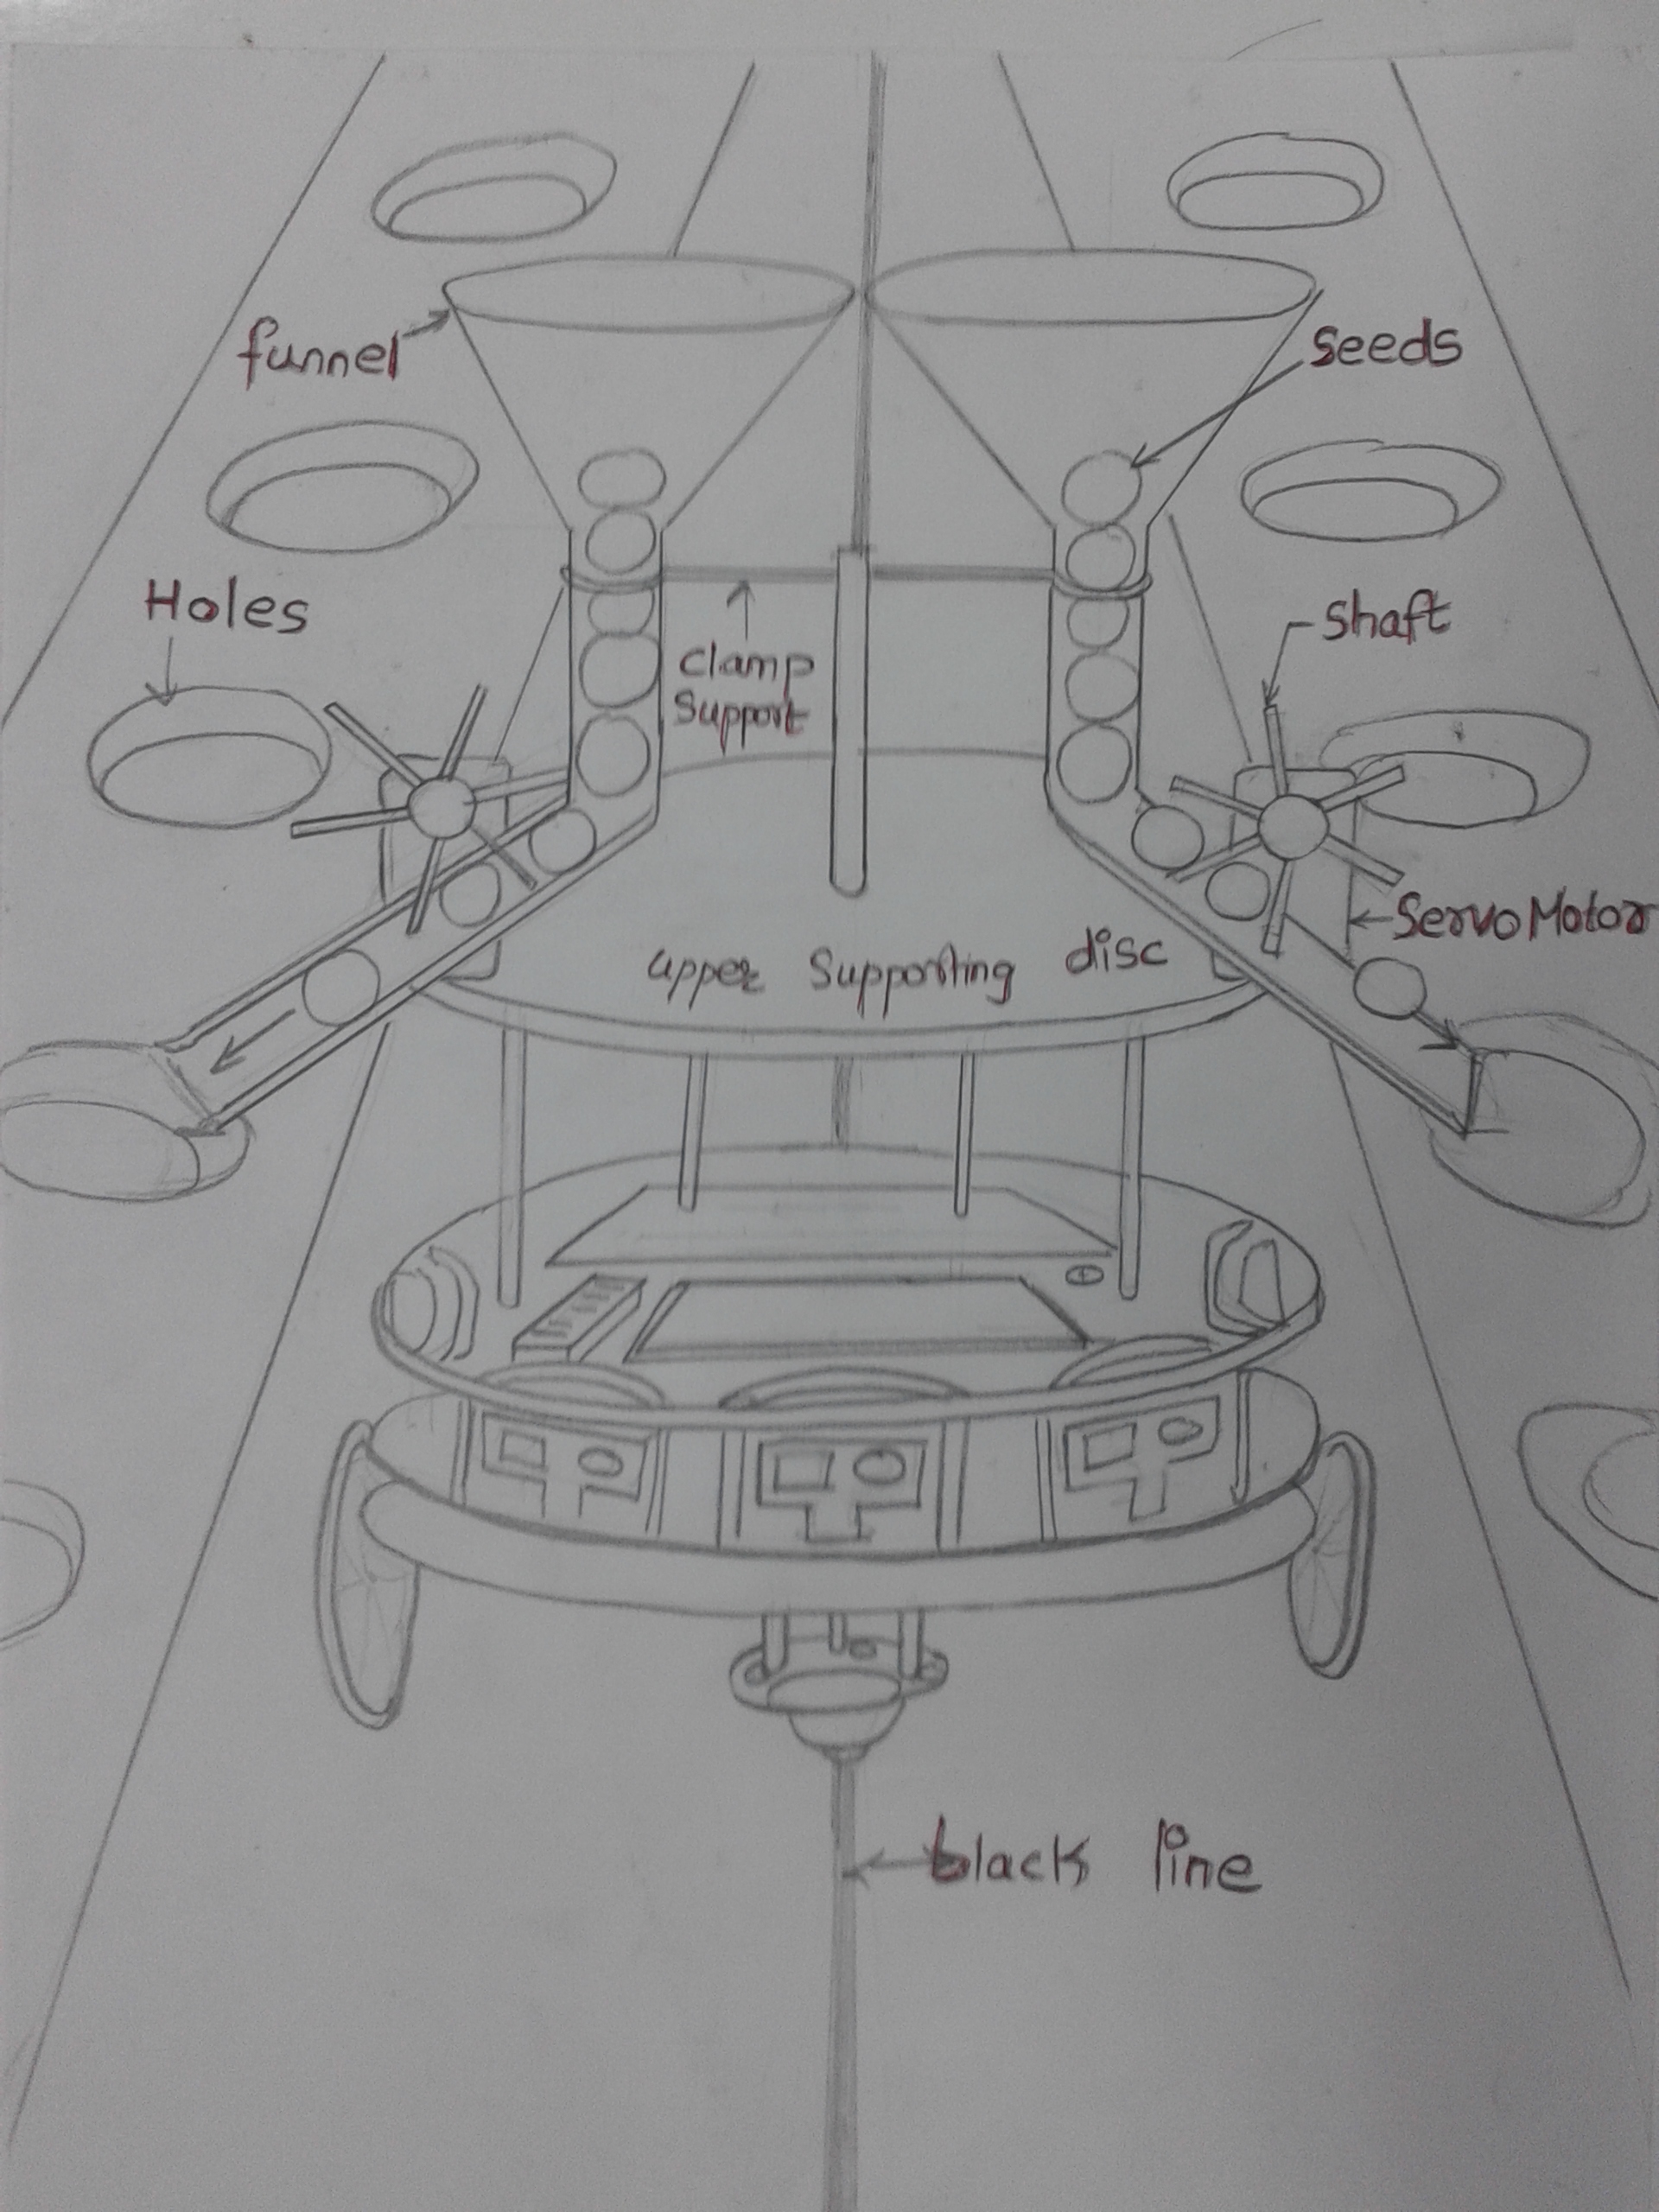 funnel
Seeds
Holes
Shaft
Clamp
Support
Servo Motor
upper Supporting disc
black line